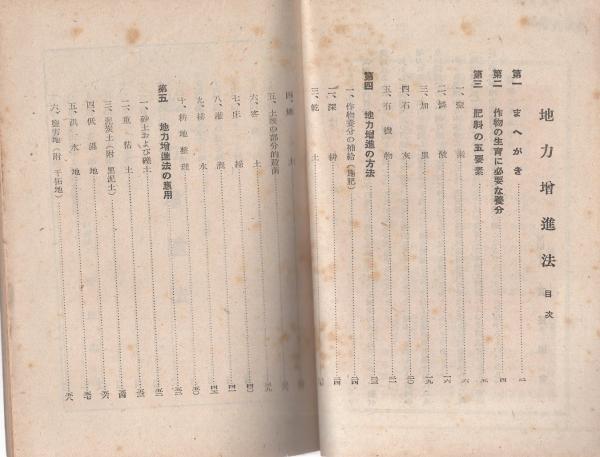 地力増進法 目次
第一 まへがき
第二 作物の生育に必要な養分
第三 肥料の五要素
一、窒素
二、燐酸
三、加里
四、石灰
五、有機物
第四 地力増進の方法
一、作物養分の補給(施肥)
二、深耕
三、乾土
四、燒土
五、土壤の部分的殺菌
六、客土
七、床締
八、灌漑
九、排水
十、耕地整理
第五 地力増進法の應用
一、砂土および礫土
二、重粘土
三、泥炭土(附 黒泥土)
四、低濕地
五、洪水地
六、鹽害地(附 干拓地)